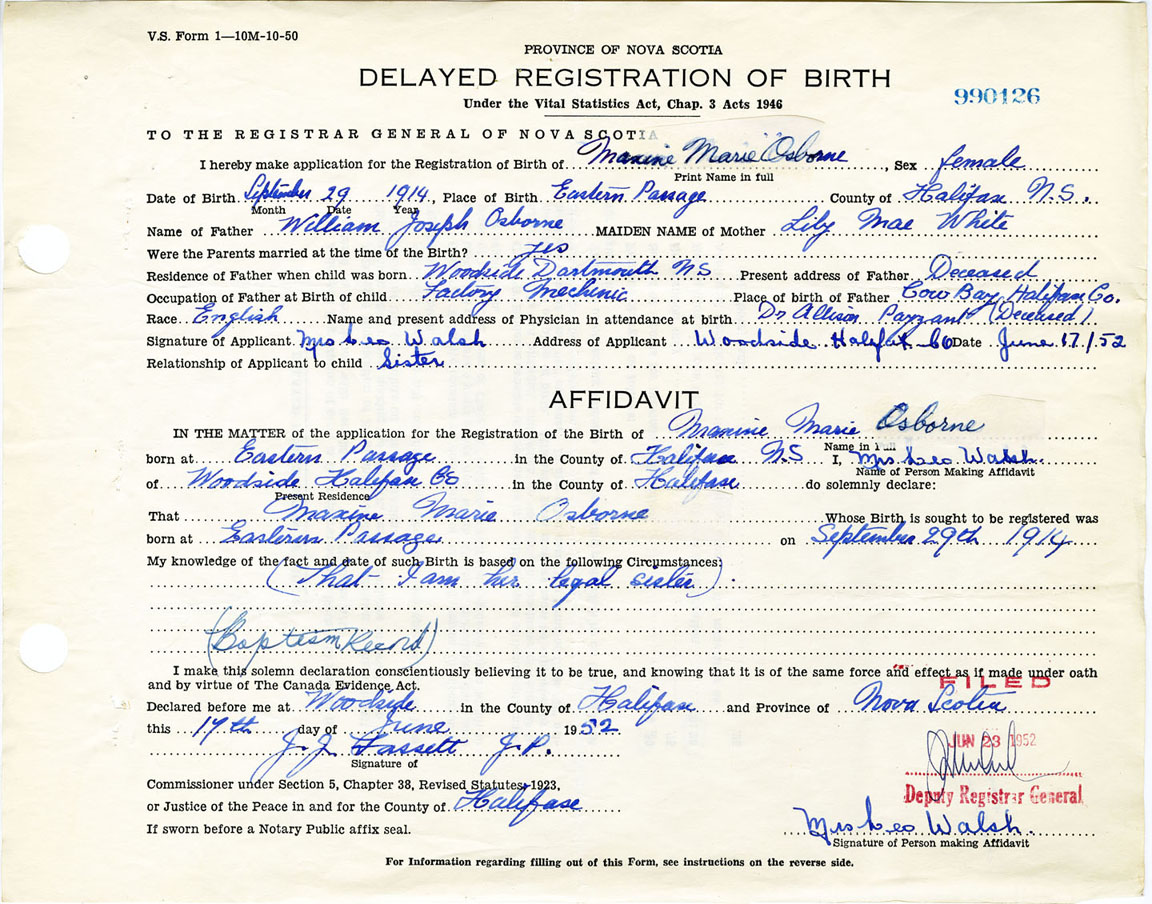 V.S. Form 1—10M-10-50
PROVINCE OF NOVA SCOTIA
DELAYED REGISTRATION OF BIRTH
990126
Under the Vital Statistics Act, Chap. 3 Acts 1946
TO THE REGISTRAR GENERAL OF NOVA SCOTIA
I hereby make application for the Registration of Birth of Maxine Marie Osborne, Sex female
Print Name in full
Date of Birth September 29 1914, Place of Birth Eastern Passage County of Halifax N.S.
Month Date Year
Name of Father William Joseph Osborne MAIDEN NAME of Mother Lily Mae White
Were the Parents married at the time of the Birth? yes
Residence of Father when child was born Woodside Dartmouth NS Present address of Father Deceased
Occupation of Father at Birth of child Factory Mechinic Place of birth of Father Cow Bay, Halifax Co.
Race English Name and present address of Physician in attendance at birth Dr Allison Payzant (Deceased)
Signature of Applicant Mrs Leo Walsh Address of Applicant Woodside Halifax Co Date June 17/52
Relationship of Applicant to child Sister
AFFIDAVIT
IN THE MATTER of the application for the Registration of the Birth of Maxine Marie Osborne
Name in Full
born at Eastern Passage in the County of Halifax NS I, Mrs Leo Walsh
Name of Person Making Affidavit
of Woodside Halifax Co in the County of Halifax do solemnly declare:
Present Residence
That Maxine Marie Osborne Whose Birth is sought to be registered was
born at Eastern Passage on September 29th 1914
My knowledge of the fact and date of such Birth is based on the following Circumstances:
(That I am her legal sister).
(Baptism Record)
I make this solemn declaration conscientiously believing it to be true, and knowing that it is of the same force and effect as if made under oath
and by virtue of The Canada Evidence Act.
FILED
Declared before me at Woodside in the County of Halifax and Province of Nova Scotia
this 17th day of June 1952
J. J. Fassett J.P.
JUN 23 1952
Signature of
Commissioner under Section 5, Chapter 38, Revised Statutes 1923,
Deputy Registrar General
or Justice of the Peace in and for the County of Halifax
Mrs Leo Walsh
If sworn before a Notary Public affix seal.
Signature of Person making Affidavit
For Information regarding filling out of this Form, see instructions on the reverse side.